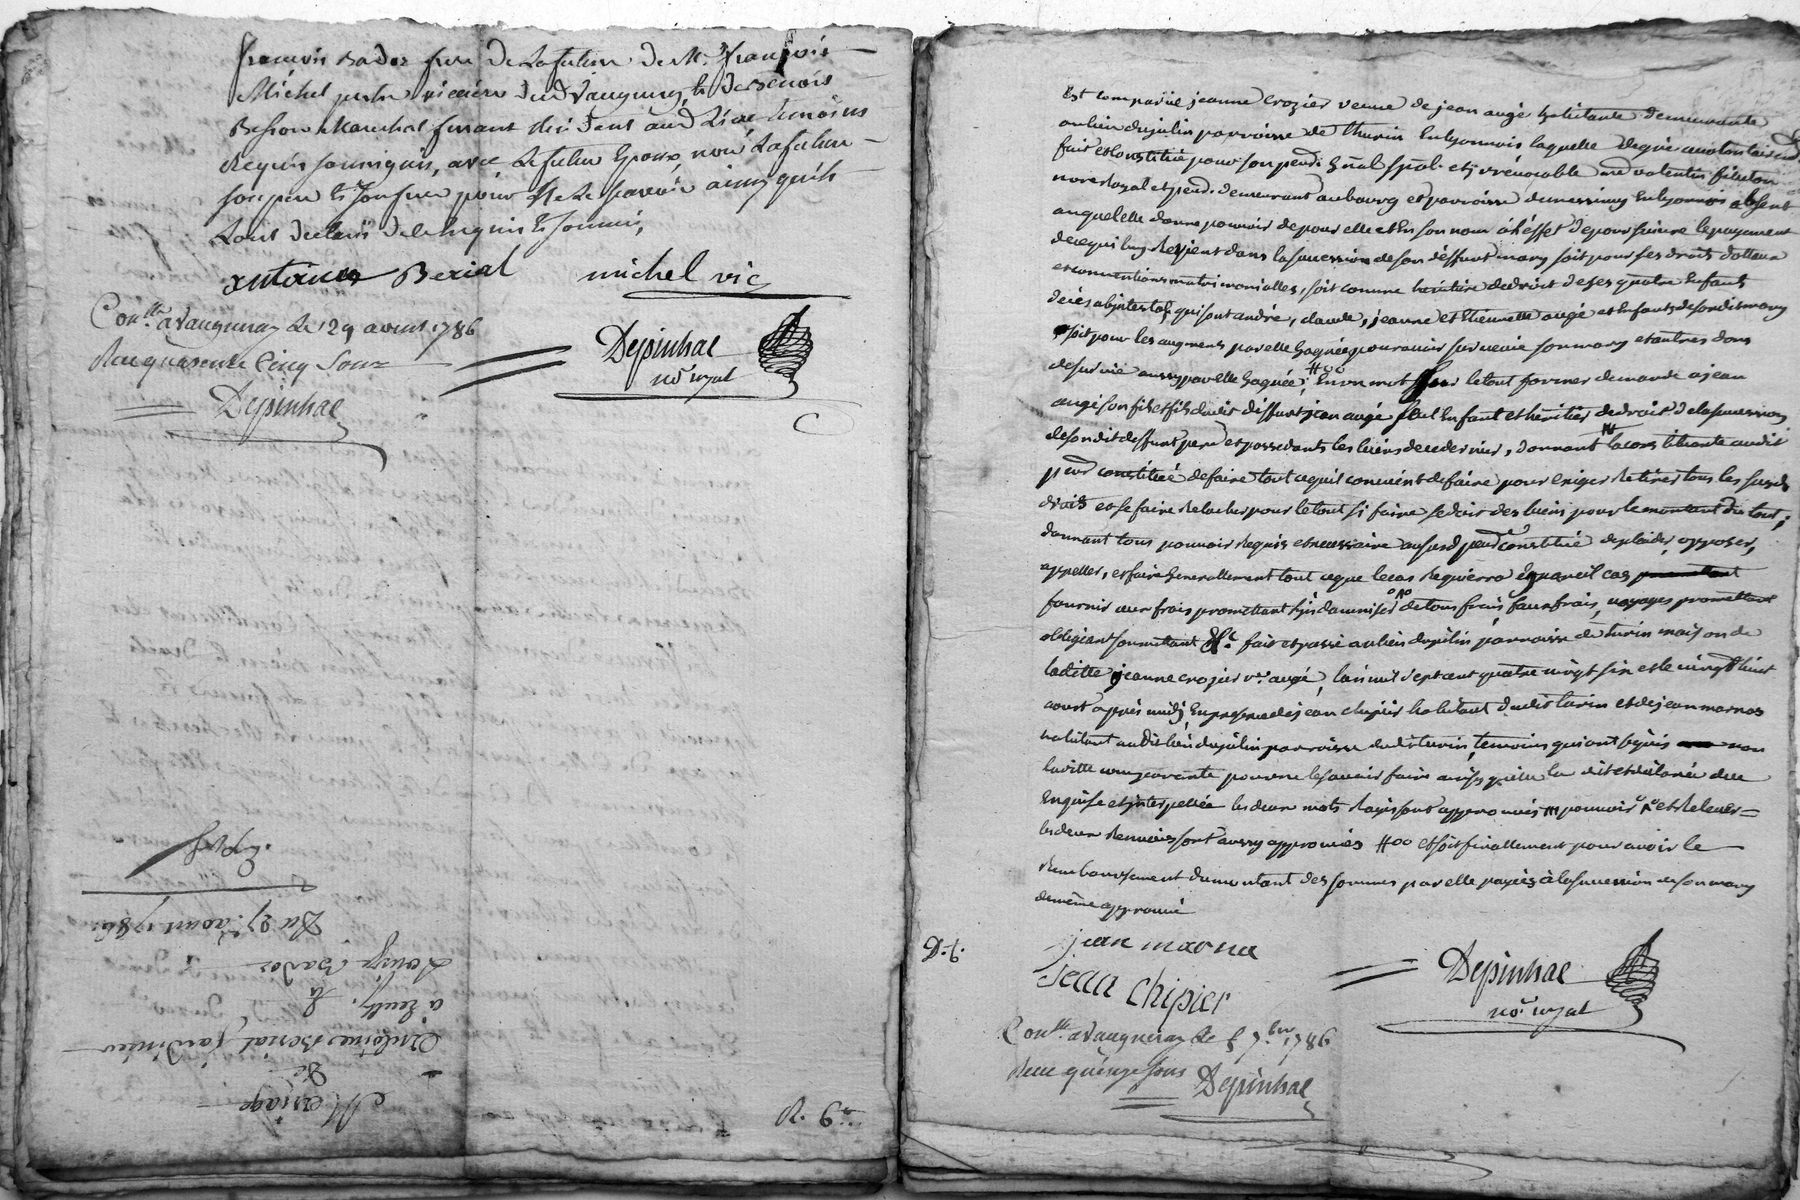 françois Bador frere de La future de Mr. françois
Michel pretre vicaire dud Vaugneray, & de Benoit
Besson Marechal ferrant residant aud Lieu temoins
Requis soussignés, avec Le futur Epoux, non La future
son pere & son frere pour ne Le scavoir ainsy quils
L'ont declaré de ce enquis & sommés,
antoinne Berial michel vic
Conllé a Vaugneray Le 29 aoust 1786
Recu quarente Cinq Sous
Depinhac
Depinhac
nore royal
Expé
Du 27 aoust 1786
Louise Bador
à Lentilly. La
Antoine Berial jardinier
De
Mariage
R. 6
Est comparüe jeanne Crozier veuve de jean augé habitante demeurante
au lieu dujulin parroisse de thurin en lyonnois laquelle degré a volontairement
fait et constitué pour son procr gnal spál et irrévocable me valentin
nore Royal et procr demeurant au bourg et parroisse de messimy en lyonnois absent
auquel elle donne pouvoir de pour elle et en son nom à l'éffet de poursuivre le payement
de ce qui luy Revient dans la succession de son déffunt mary soit pour ses droits dottaux
et conventions matrimonialles, soit comme heritiere de droit de ses quatre enfants
décédés abintestat, qui sont andré, claude, jeanne et Etiennette augé et enfants de son dit mary
soit pour les augments par elle gagnée pour avoir survecu son mary et autres dons
de survie aussy par elle gagnée; #oo en un mot pour le tout former demande a jean
augé son fils et fils dudit déffunt jean augé seul enfant et héritier de droit de la succession
de son dit deffunt pere et possedant les biens de ce dernier, donnant la constituante audit
procr constitué de faire tout ce quil convient de faire pour exiger Retirer tous les susd
droits et se faire Relacher pour le tout si faire se doit des biens pour le montant du tout;
donnant tous pouvoir Requis et necessaire au susd procr constitué de plaider, opposer,
appeller, et faire generallement tout ce que le cas Requierra en pareil cas promettant
fournir aux frais promettant indamniser de tous frais faux frais, voyages promettant
obligeant soumettant &c. fait et passé au lieu dujulin parroisse de turin maison de
ladite jeanne crozier ve augé, l'an mil sept cent quatre vingt six et le vingt huit
aoust après midy, En presence de jean chipier habitant dudit turin et de jean marnas
habitant audit lieu dujulin parroisse dudit turin, temoins qui ont signés non
laditte comparante pour ne le savoir faire ainsy quelle la dit et déclarée de ce
enquise et interpellée les deux mots Rayés sont approuvés pouvoir et Relever =
les deux Renvoies sont aussy approuvés #oo et soit finallement pour avoir le
Remboursement du montant des sommes par elle payées à la succession de son mary
de même approuvé
D. t.
jean marna
Jean chipier
Depinhac
nore royal
Conllé a Vaugneray Le 5 7bre 1786
Recu quinze sous Depinhac